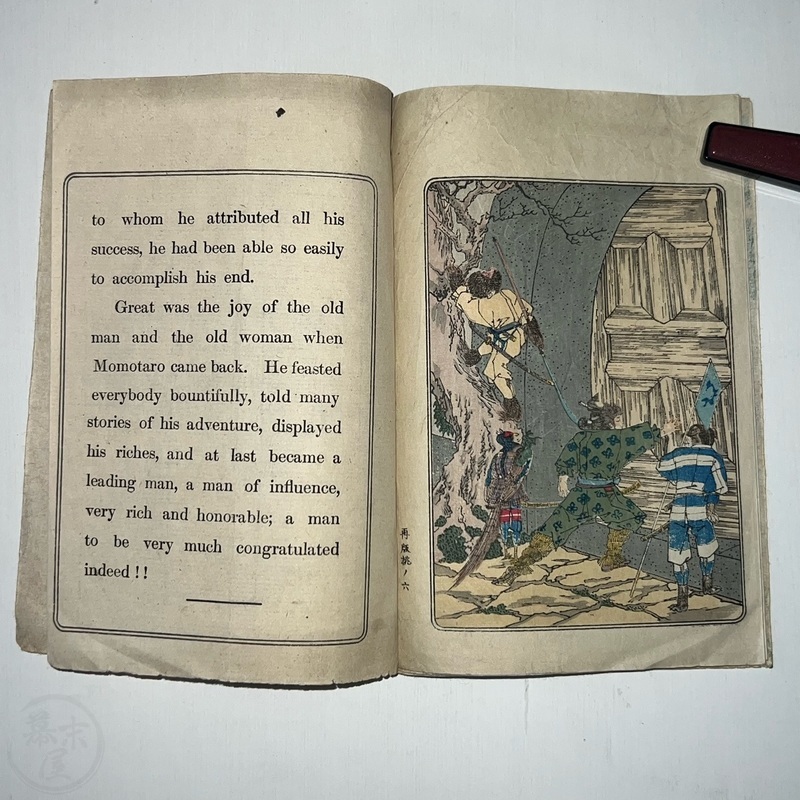 to whom he attributed all his
success, he had been able so easily
to accomplish his end.
Great was the joy of the old
man and the old woman when
Momotaro came back. He feasted
everybody bountifully, told many
stories of his adventure, displayed
his riches, and at last became a
leading man, a man of influence,
very rich and honorable; a man
to be very much congratulated
indeed ! !
再版桃ノ六
幕末屋